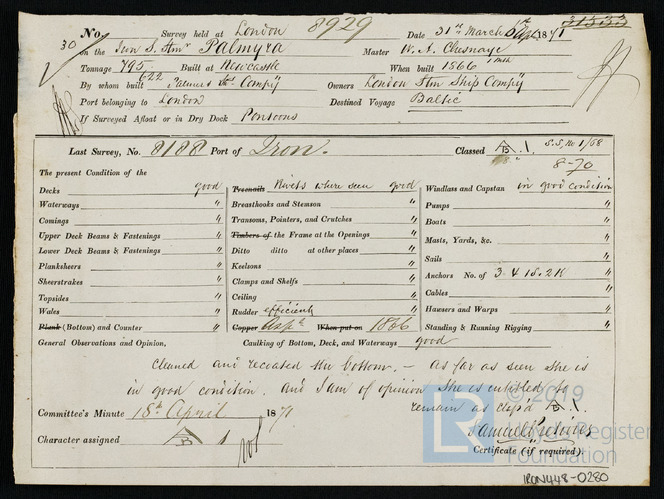 No. Survey held at London 8929 Date 31st March 1871 31533
30 on the Iron S. Stmr Palmyra Master
Tonnage 795 Built at Newcastle When built 1866
622
By whom built Palmers Compy Owners London Stm Ship Compy
Port belonging to London Destined Voyage Baltic
If Surveyed Afloat or in Dry Dock Pontoons
Last Survey, No. 8188 Port of Iron. Classed A B .1. S.S. No 1/68
8-70
The present Condition of the
Decks good
Waterways "
Comings "
Upper Deck Beams & Fastenings "
Lower Deck Beams & Fastenings "
Planksheers "
Sheerstrakes "
Topsides "
Wales "
Plank (Bottom) and Counter "
Treenails Rivets where seen good
Breasthooks and Stemson "
Transoms, Pointers, and Crutches "
Timbers of the Frame at the Openings "
Ditto ditto at other places "
Keelsons "
Clamps and Shelfs "
Ceiling "
Rudder efficient "
Copper When put on 1866
Windlass and Capstan in good condition
Pumps "
Boats "
Masts, Yards, &c. "
Sails "
Anchors No. of 3 & 1 S. 2 K "
Cables "
Hawsers and Warps "
Standing & Running Rigging "
General Observations and Opinion, Caulking of Bottom, Deck, and Waterways good
Cleaned and recoated the bottom. — As far as seen she is
in good condition. and I am of opinion she is entitled to
remain as clas'd A B .1.
Committee's Minute 18th April 1871
Character assigned A B 1
Certificate (if required)
© 2019
LR Register
Foundation
IRON448-0280